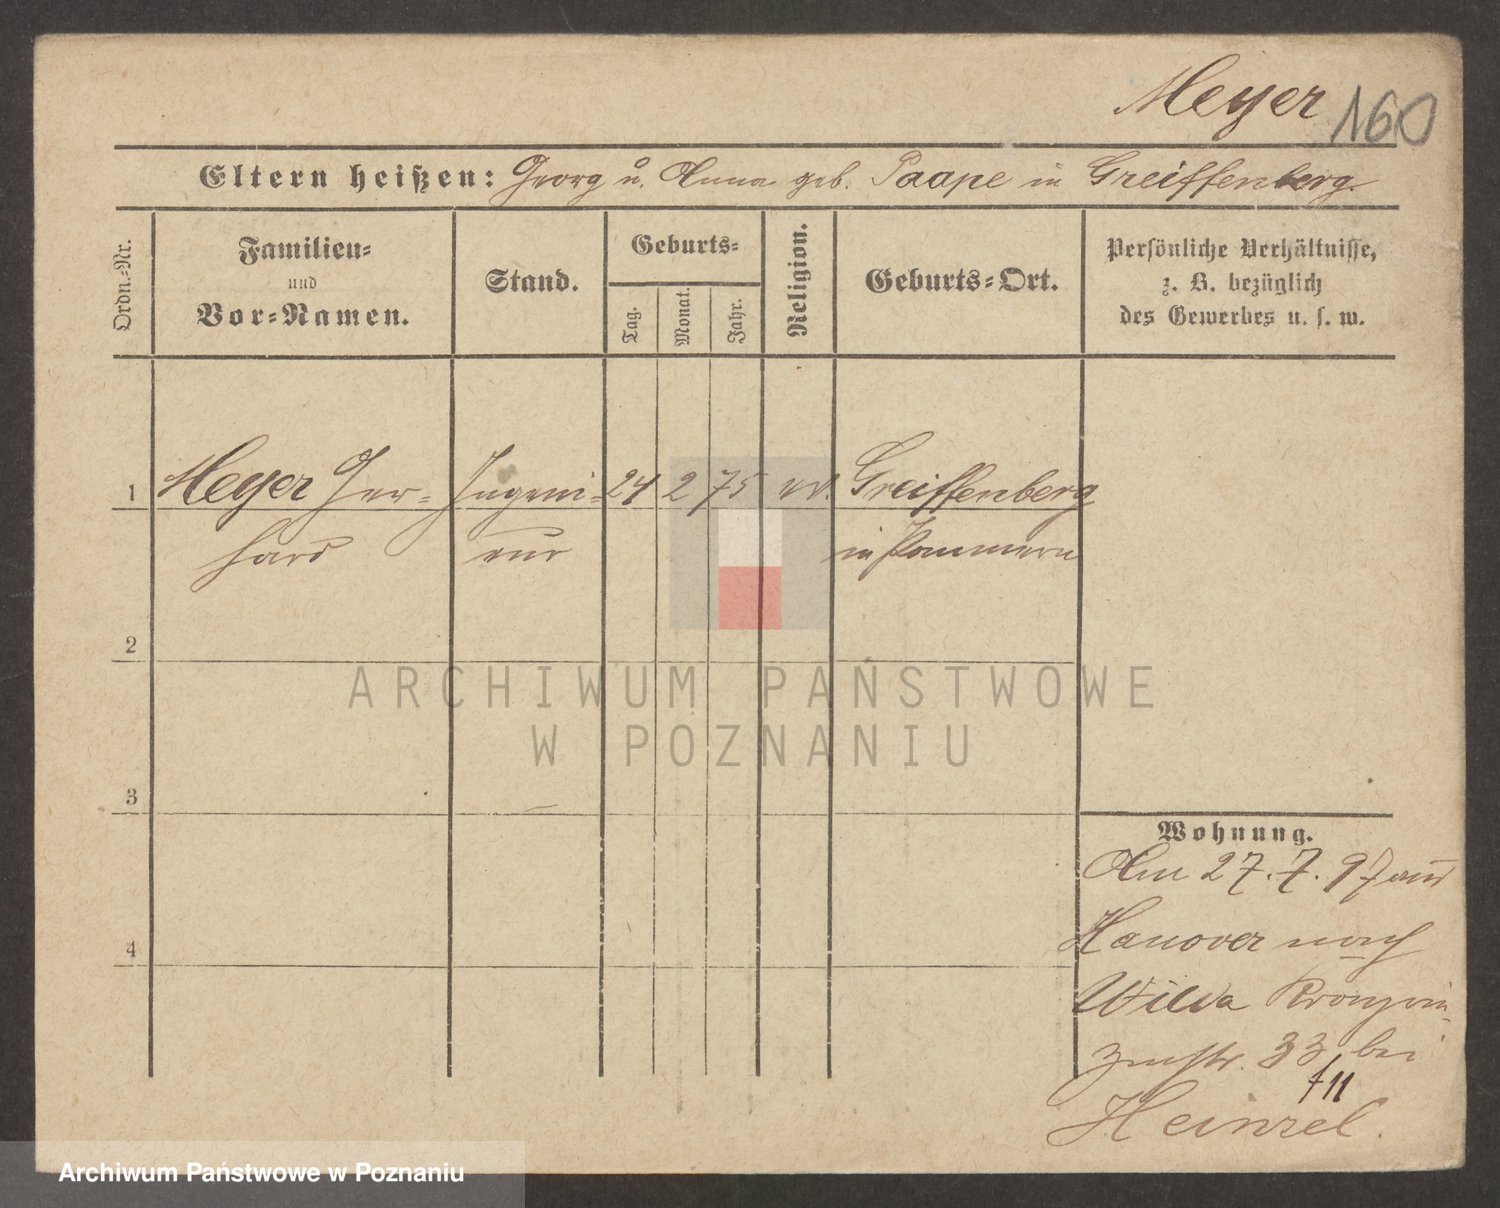 Meyer 160
Eltern heißen: Georg u. Anna geb. Paape in Greiffenberg.
Ordn.-Nr.
Familien-
und
Vor-Namen.
Stand.
Geburts-
Tag.
Monat.
Jahr.
Religion.
Geburts-Ort.
Persönliche Verhältnisse,
z. B. bezüglich
des Gewerbes u. s. w.
1 Meyer Ger- Ingeni- 24 2 75 ev. Greiffenberg
hard eur in Pommern
2
3
4
Wohnung.
Am 27.7.97 aus
Hanover nach
Wilda Kronprin-
zenstr. 33 bei
Heinzel.
ARCHIWUM PAŃSTWOWE
W POZNANIU
Archiwum Państwowe w Poznaniu